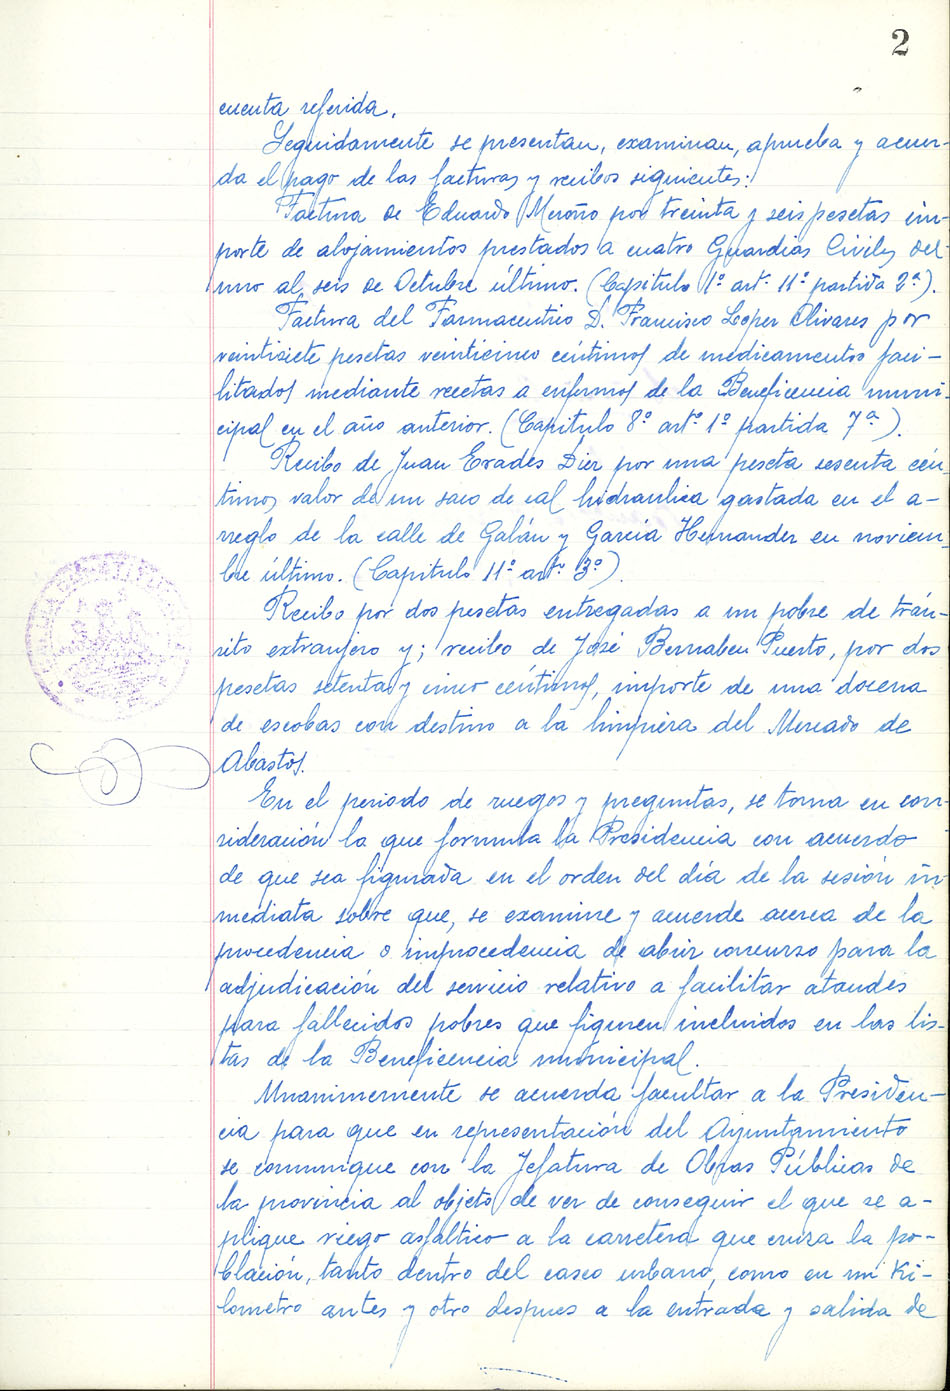 2
cuenta referida.
Seguidamente se presentan, examinan, aprueba y acuer-
da el pago de las facturas y recibos siguientes:
Factura de Eduardo Meroño por treinta y seis pesetas im-
porte de alojamientos prestados a cuatro Guardias Civiles del
uno al seis de Octubre último. (Capitulo 1º artº 11º partida 2ª).
Factura del Farmaceutico D. Francisco Lopez Olivares por
veintisiete pesetas veinticinco céntimos de medicamentos faci-
litados mediante recetas a enfermos de la Beneficencia muni-
cipal en el año anterior. (Capitulo 8º artº 1º partida 7ª).
Recibo de Juan Erades Diez por una peseta sesenta cén-
timos valor de un saco de cal hidraulica gastada en el a-
rreglo de la calle de Galán y Garcia Hernandez en noviem-
bre último. (Capitulo 11º artº 3º).
Recibo por dos pesetas entregadas a un pobre de trán-
sito extranjero y; recibo de José Bernabeu Puerto, por dos
pesetas setenta y cinco céntimos, importe de una docena
de escobas con destino a la limpieza del Mercado de
Abastos.
En el periodo de ruegos y preguntas, se toma en con-
sideración la que formula la Presidencia con acuerdo
de que sea figurada en el orden del día de la sesión in-
mediata sobre que, se examine y acuerde acerca de la
procedencia o improcedencia de abrir concurso para la
adjudicación del servicio relativo a facilitar ataudes
para fallecidos pobres que figuren incluidos en las lis-
tas de la Beneficencia municipal.
Unanimemente se acuerda facultar a la Presiden-
cia para que en representación del Ayuntamiento
se comunique con la Jefatura de Obras Públicas de
la provincia al objeto de ver de conseguir el que se a-
plique riego asfaltico a la carretera que cruza la po-
blación, tanto dentro del casco urbano, como en un ki-
lometro antes y otro despues a la entrada y salida de